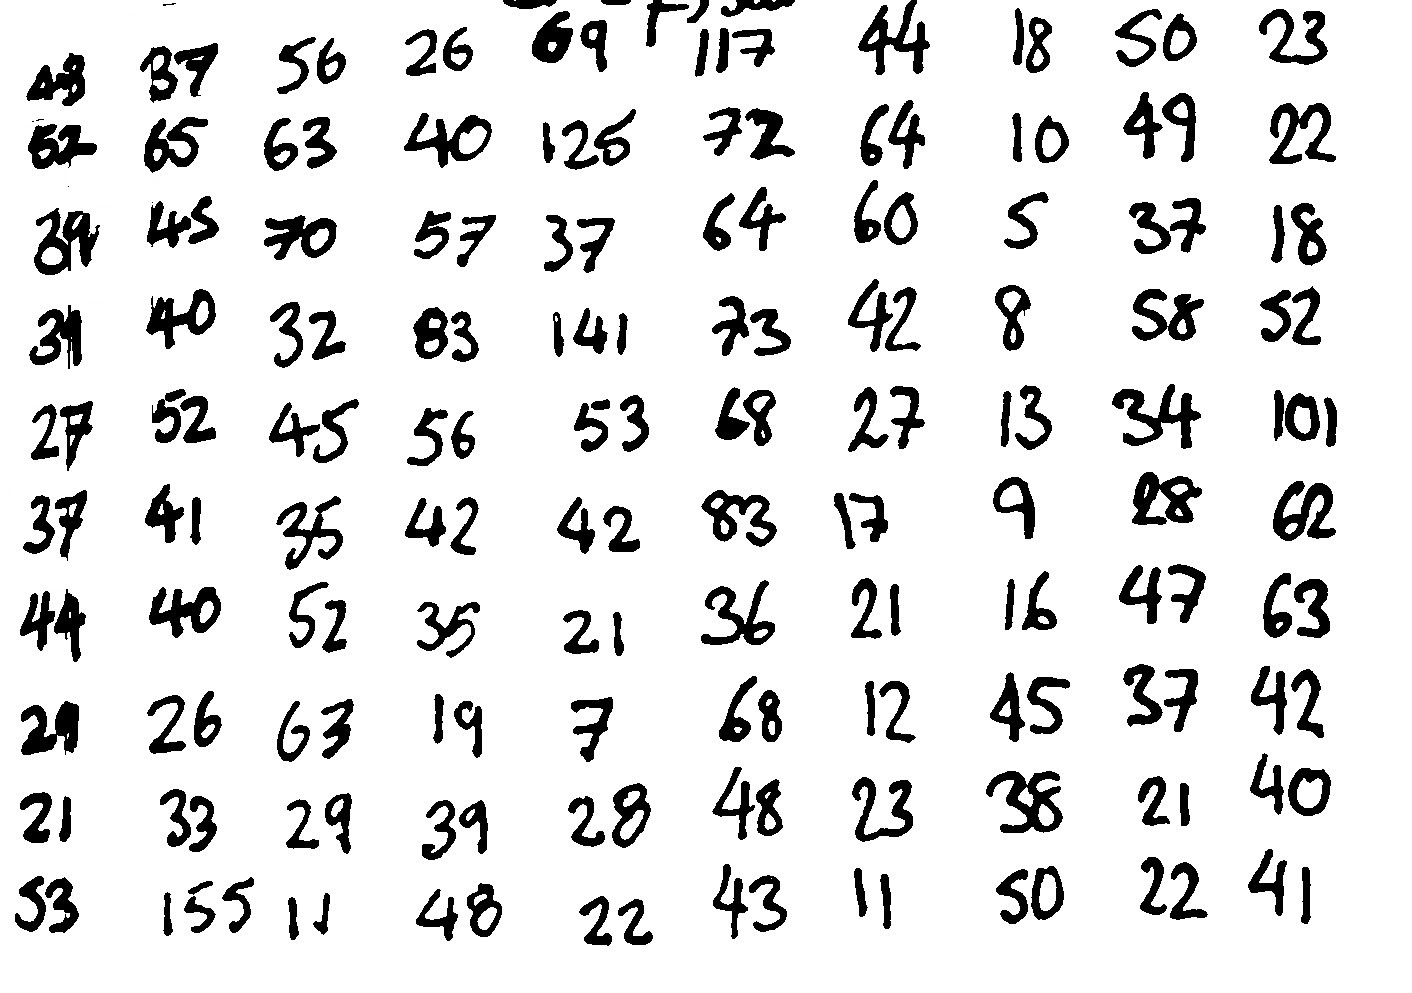 48 37 56 26 69 117 44 18 50 23
52 65 63 40 125 72 64 10 49 22
39 45 70 57 37 64 60 5 37 18
31 40 32 83 141 73 42 8 58 52
27 52 45 56 53 68 27 13 34 101
37 41 35 42 42 83 17 9 28 62
44 40 52 35 21 36 21 16 47 63
29 26 63 19 7 68 12 45 37 42
21 33 29 39 28 48 23 38 21 40
53 155 11 48 22 43 11 50 22 41